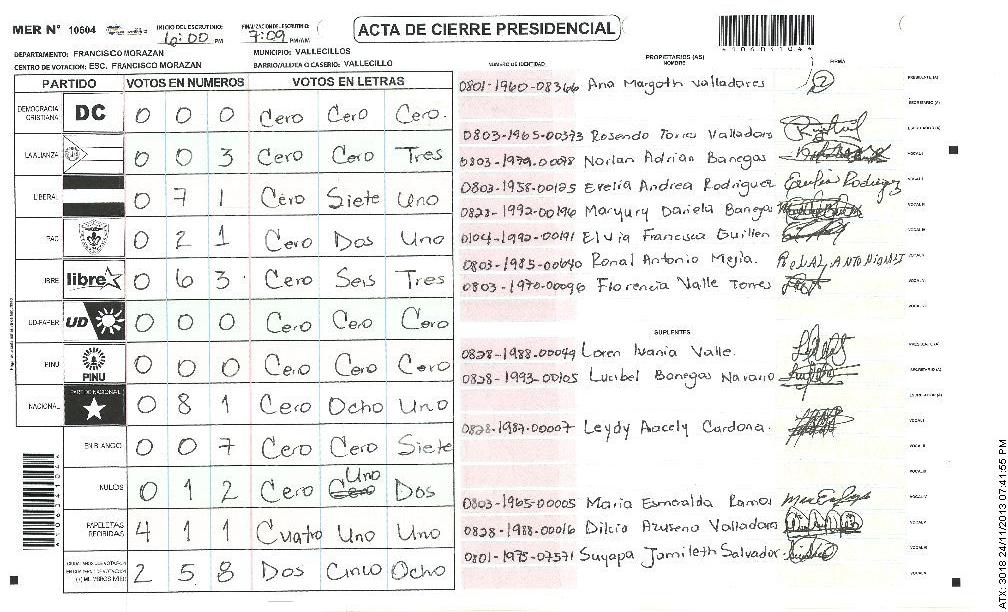 MER N° 10604
INICIO DEL ESCRUTINIO: 6:00 PM
FINALIZACION DE ESCRUTINIO: 7:09 PM/AM
ACTA DE CIERRE PRESIDENCIAL
DEPARTAMENTO: FRANCISCO MORAZAN
MUNICIPIO: VALLECILLOS
CENTRO DE VOTACION: ESC. FRANCISCO MORAZAN
BARRIO/ALDEA O CASERIO: VALLECILLO
PARTIDO VOTOS EN NUMEROS VOTOS EN LETRAS
DEMOCRACIA CRISTIANA DC 0 0 0 Cero Cero Cero.
LA ALIANZA 0 0 3 Cero Cero Tres
LIBERAL 0 7 1 Cero Siete Uno
PAC 0 2 1 Cero Dos Uno
LIBRE libre 0 6 3 Cero Seis Tres
UD-FAPER UD 0 0 0 Cero Cero Cero
PINU PINU 0 0 0 Cero Cero Cero
NACIONAL PARTIDO NACIONAL 0 8 1 Cero Ocho Uno
EN BLANCO 0 0 7 Cero Cero Siete
NULOS 0 1 2 Cero Uno Dos
PAPELETAS RECIBIDAS 4 1 1 Cuatro Uno Uno
2 5 8 Dos Cinco Ocho
NUMERO DE IDENTIDAD
PROPIETARIOS (AS)
NOMBRE
FIRMA
0801-1960-08366 Ana Margoth Valladares PRESIDENTE (A)
SECRETARIO (A)
0803-1965-00393 Rosendo Torres Valladares ESCRUTADOR (A)
0803-1979-00098 Norlan Adrian Banegas VOCAL I
0803-1958-00125 Evelia Andrea Rodriguez Evelia Rodriguez
0828-1992-00196 Maryury Daniela Banegas
0104-1992-00191 Elvia Francisca Guillen
0803-1985-00640 Ronal Antonio Mejia.
0803-1970-00096 Florencia Valle Torres
SUPLENTES
0828-1988-00049 Loren Ivania Valle. PRESIDENTE (A)
0828-1993-00105 Lucibel Banegas Navarro SECRETARIO (A)
ESCRUTADOR (A)
0828-1987-00007 Leydy Aacely Cardona. VOCAL I
0803-1965-00005 Maria Esmeralda Ramos
0828-1988-00016 Dilcia Azucena Valladares
0801-1975-07571 Suyapa Jamileth Salvador
ATX: 3018 24/11/2013 07:41:55 PM